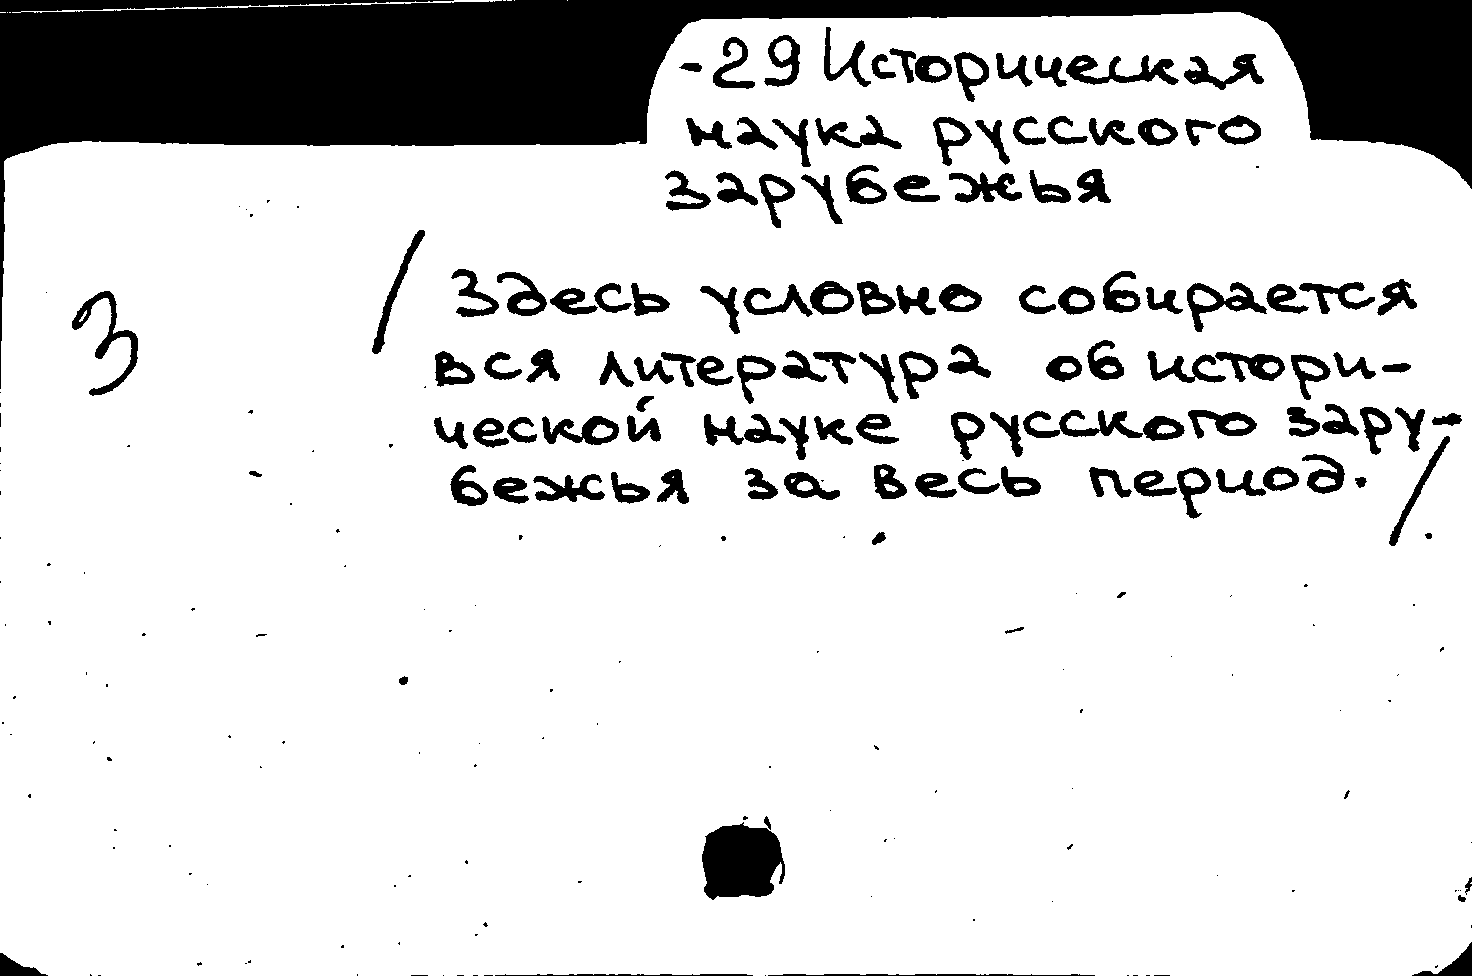 -29 Историческая
наука русского
зарубежья
3
/ Здесь условно собирается
вся литература об истори-
ческой науке русского зару-
бежья за весь период. /